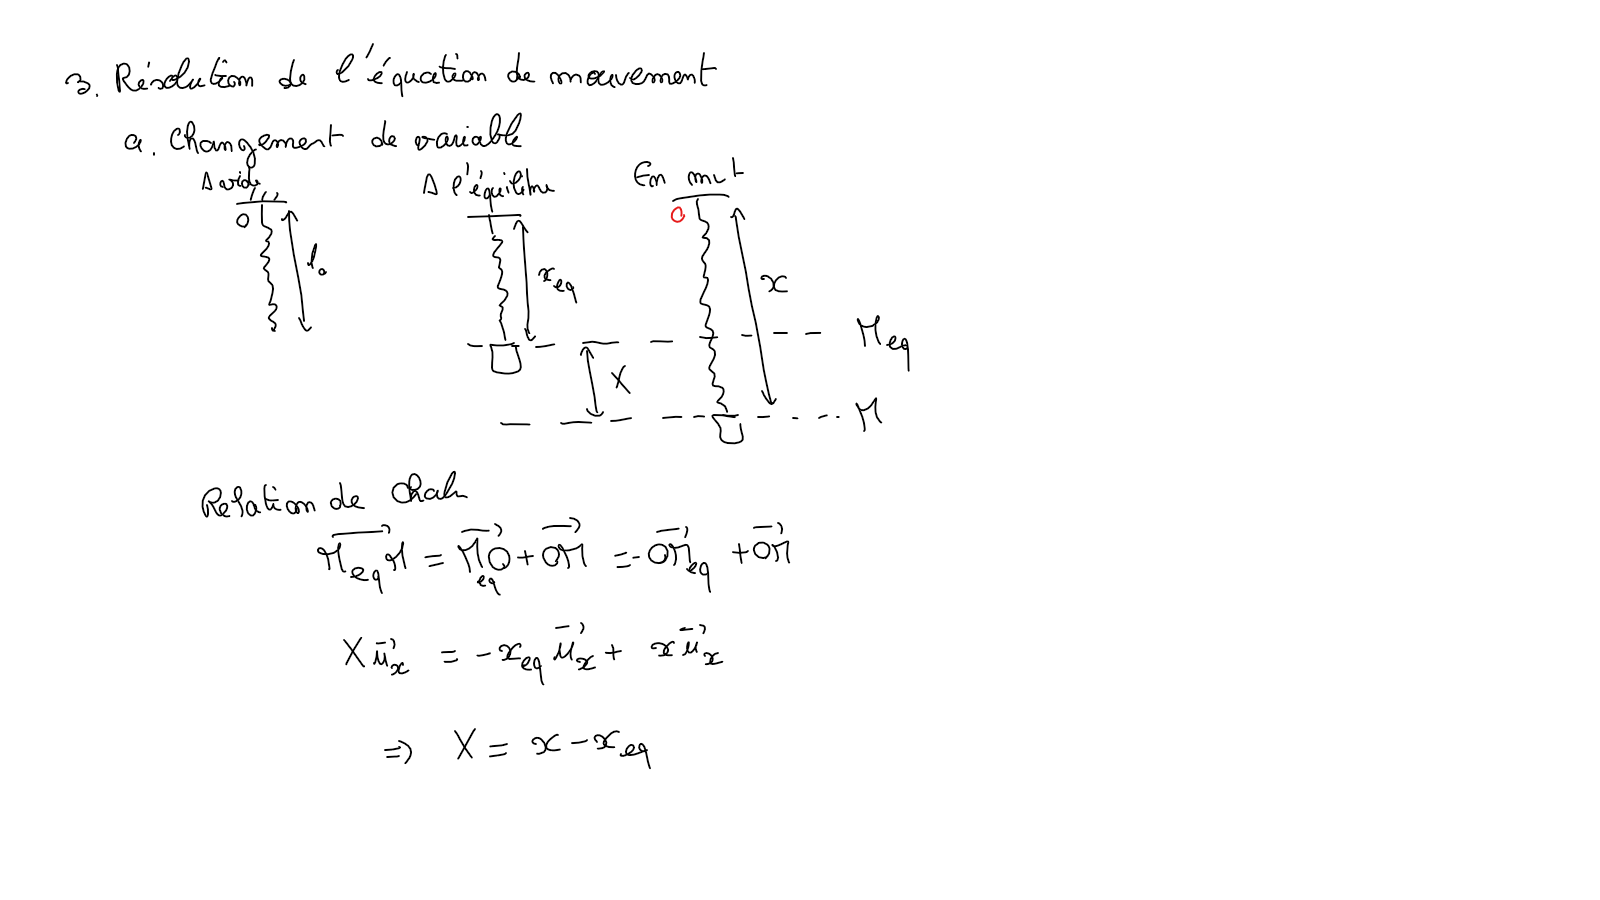 3. Résolution de l'équation de mouvement
a. Changement de variable
A vide
A l'équilibre
En mvt
O
O
l₀
x_eq
x
M_eq
X
M
Relation de Chasles
\overrightarrow{M_{eq}M} = \overrightarrow{M_{eq}O} + \overrightarrow{OM} = -\overrightarrow{OM_{eq}} + \overrightarrow{OM}
X\vec{u}_x = -x_{eq}\vec{u}_x + x\vec{u}_x
⇒ X = x - x_{eq}